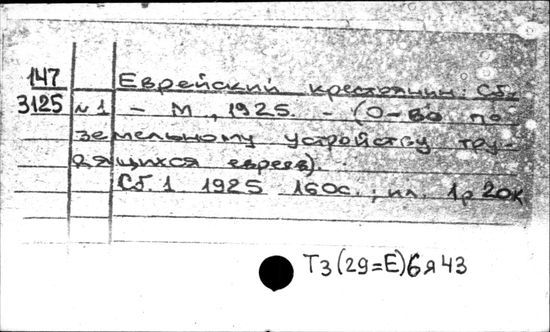 147
3125
Еврейский крестьянин: Сб.
№1 – М., 1925. – (О-во по
земельному устройству тру-
дящихся евреев).
Сб. 1 1925 160с.; ил. 1р 20к
Т3(29=Е)6я43